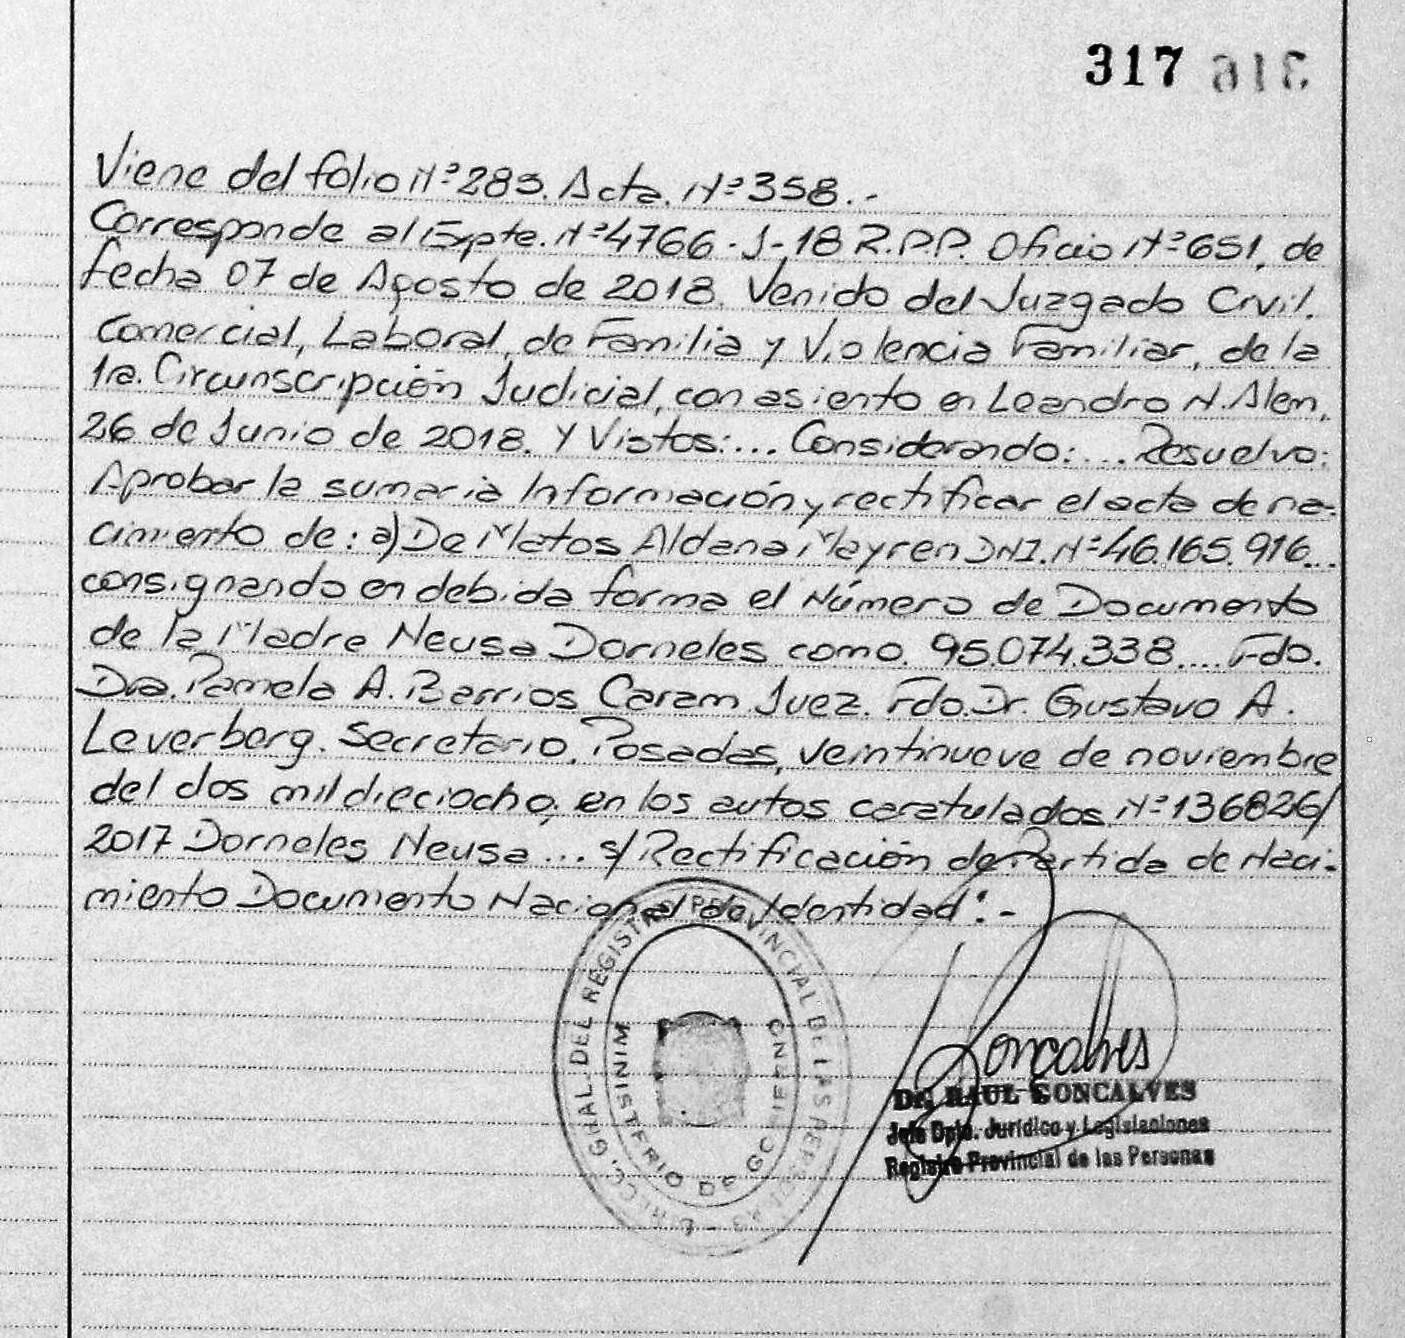 317 316
Viene del folio Nº 289. Acta. Nº 358.-
Corresponde al Expte. Nº 4766-J-18 R.P.P. Oficio Nº 651, de
fecha 07 de Agosto de 2018. Venido del Juzgado Civil.
Comercial, Laboral, de Familia y Violencia Familiar, de la
1ra. Circunscripción Judicial, con asiento en Leandro N. Alem,
26 de Junio de 2018. Y Vistos:... Considerando:... Resuelvo:
Aprobar la sumaria Información y rectificar el acta de na-
cimiento de: a) De Matos Aldana Mayren DNI. Nº 46.165.916...
consignando en debida forma el Número de Documento
de la Madre Neusa Dorneles como. 95.074.338.... Fdo.
Dra. Pamela A. Barrios Caram Juez. Fdo. Dr. Gustavo A.
Leverberg. Secretario. Posadas, veintinueve de noviembre
del dos mil dieciocho, en los autos caratulados Nº 136826/
2017 Dorneles Neusa ... s/ Rectificación de Partida de Naci-
miento Documento Nacional de Identidad".-
GRAL. DEL REGISTRO PROVINCIAL DE LAS PERSONAS
MINISTERIO DE GOBIERNO
Goncalves
Dr. RAUL GONCALVES
Jefe Dpto. Jurídico y Legislaciones
Registro Provincial de las Personas